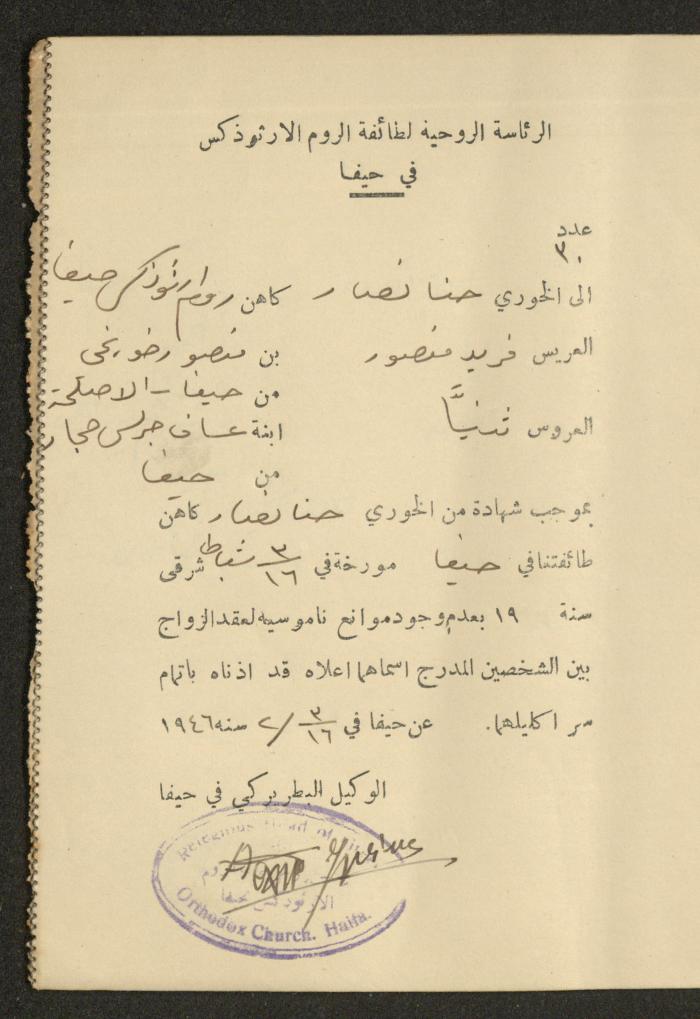 الرئاسة الروحية لطائفة الروم الارثوذكس
في حيفا
عدد
٣٠
الى الخوري حنا نصار كاهن روم ارثوذكس حيفا
العريس فريد منصور بن منصور
من حيفا - الاصل
العروس ابنة عساف جرلس حجار
من حيفا
بموجب شهادة من الخوري حنا نصار كاهن
طائفتنا في حيفا مورخة في ٣/١٦ شباط شرقي
سنة ١٩ بعدم وجود موانع ناموسيه لعقد الزواج
بين الشخصين المدرج اسماهما اعلاه قد اذناه باتمام
سر اكليلهما. عن حيفا في ٣/١٦ /٢ سنه ١٩٤٦
الوكيل البطريركي في حيفا
Religious Head of
روم
الارثوذكس بحيفا
Orthodox Church. Haifa.